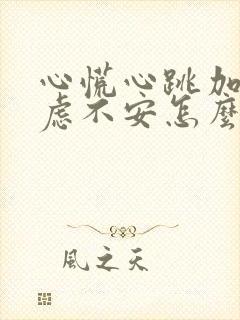 心慌心跳加
虑不安怎麼
風之天